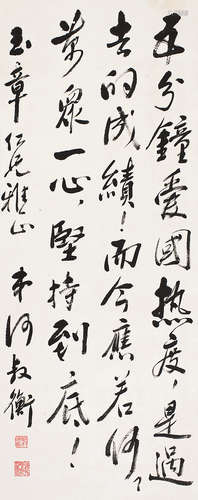 五分鐘愛國热度，是過
去的成績！而今應若何？
萬眾一心，堅持到底！
玉章仁兄雅正 弟何叔衡